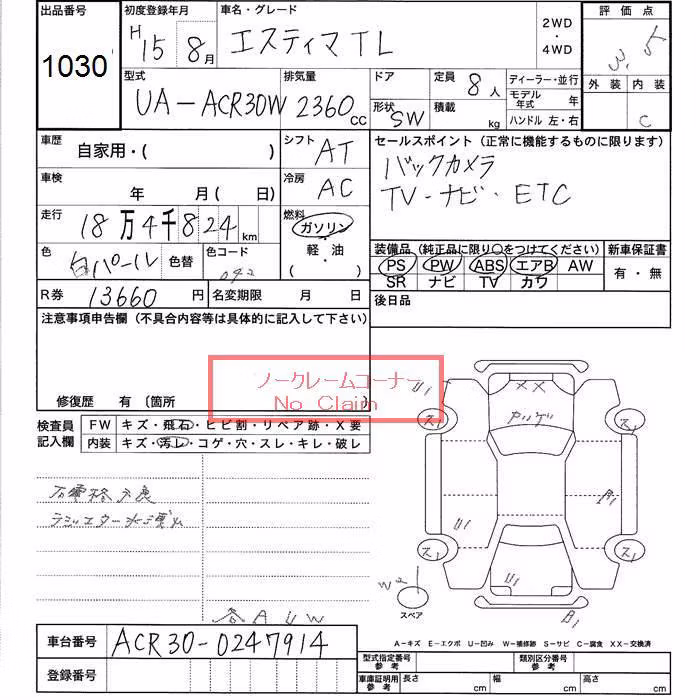 出品番号 初度登録年月 車名・グレード 評価点
1030 H 15 8月 エスティマTL 2WD・4WD 3.5
外装 内装
C
型式 排気量 ドア 定員 8人 ディーラー・並行
UA-ACR30W 2360CC 形状 SW 積載 kg モデル年式 年
ハンドル 左・右
車歴 自家用・( ) シフト AT セールスポイント(正常に機能するものに限ります)
バックカメラ
車検 年 月(日) 冷房 AC TV・ナビ・ETC
走行 18万4千824km 燃料 ガソリン・軽・油・( )
色 白パール 色替 色コード 042 装備品(純正品に限り○をつけてください) 新車保証書
PS PW ABS エアB AW 有・無
SR ナビ TV カワ
R券 13660円 名変期限 月 日 後日品
注意事項申告欄(不具合内容等は具体的に記入して下さい)
ノークレームコーナー
No Claim
修復歴 有〔箇所
検査員記入欄 FW キズ・飛石・ヒビ割・リペア跡・X要
内装 キズ・汚レ・コゲ・穴・スレ・キレ・破レ
U1
XX
ス1
ス1
U1
ス1
ス1
U1
W2
スペア
各AUW
車台番号 ACR30-0247914
A-キズ E-エクボ U-凹み W-補修跡 S-サビ C-腐食 XX-交換済
登録番号 型式指定番号参考 類別区分番号参考
車庫証明用参考 長さ cm 幅 cm 高さ cm